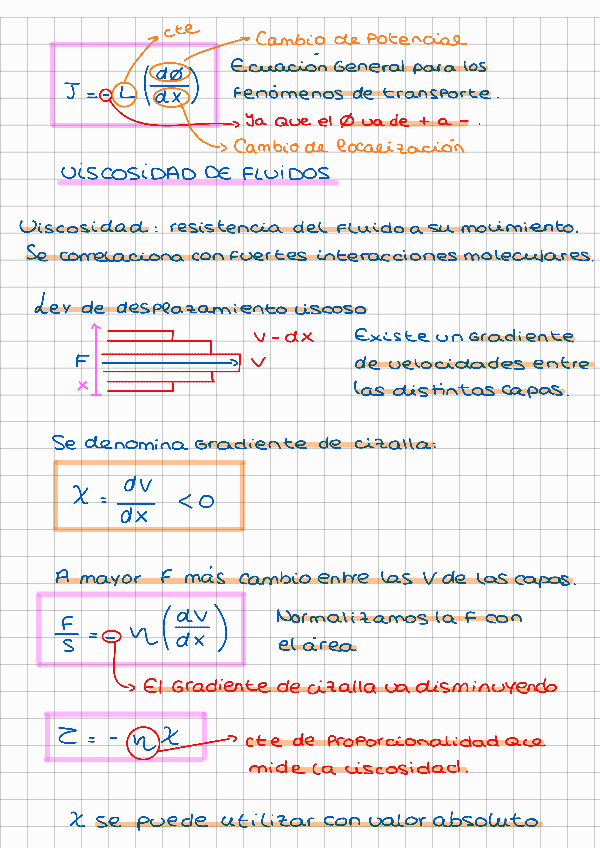 cte
Cambio de Potencial
J = - L (dø/dx)
Ecuación General para los
Fenómenos de transporte.
Ya que el Ø va de + a - .
Cambio de localización
VISCOSIDAD DE FLUIDOS
Viscosidad : resistencia del Fluido a su movimiento.
Se correlaciona con Fuertes interacciones moleculares.
Ley de desplazamiento viscoso
V - dx
F
V
x
Existe un Gradiente
de velocidades entre
las distintas capas.
Se denomina Gradiente de cizalla:
χ = dV/dx < 0
A mayor F más cambio entre las V de las capas.
F/S = - η (dV/dx)
Normalizamos la F con
el área
El Gradiente de cizalla va disminuyendo
Ʒ = - η χ
cte de Proporcionalidad que
mide la viscosidad.
χ se puede utilizar con valor absoluto